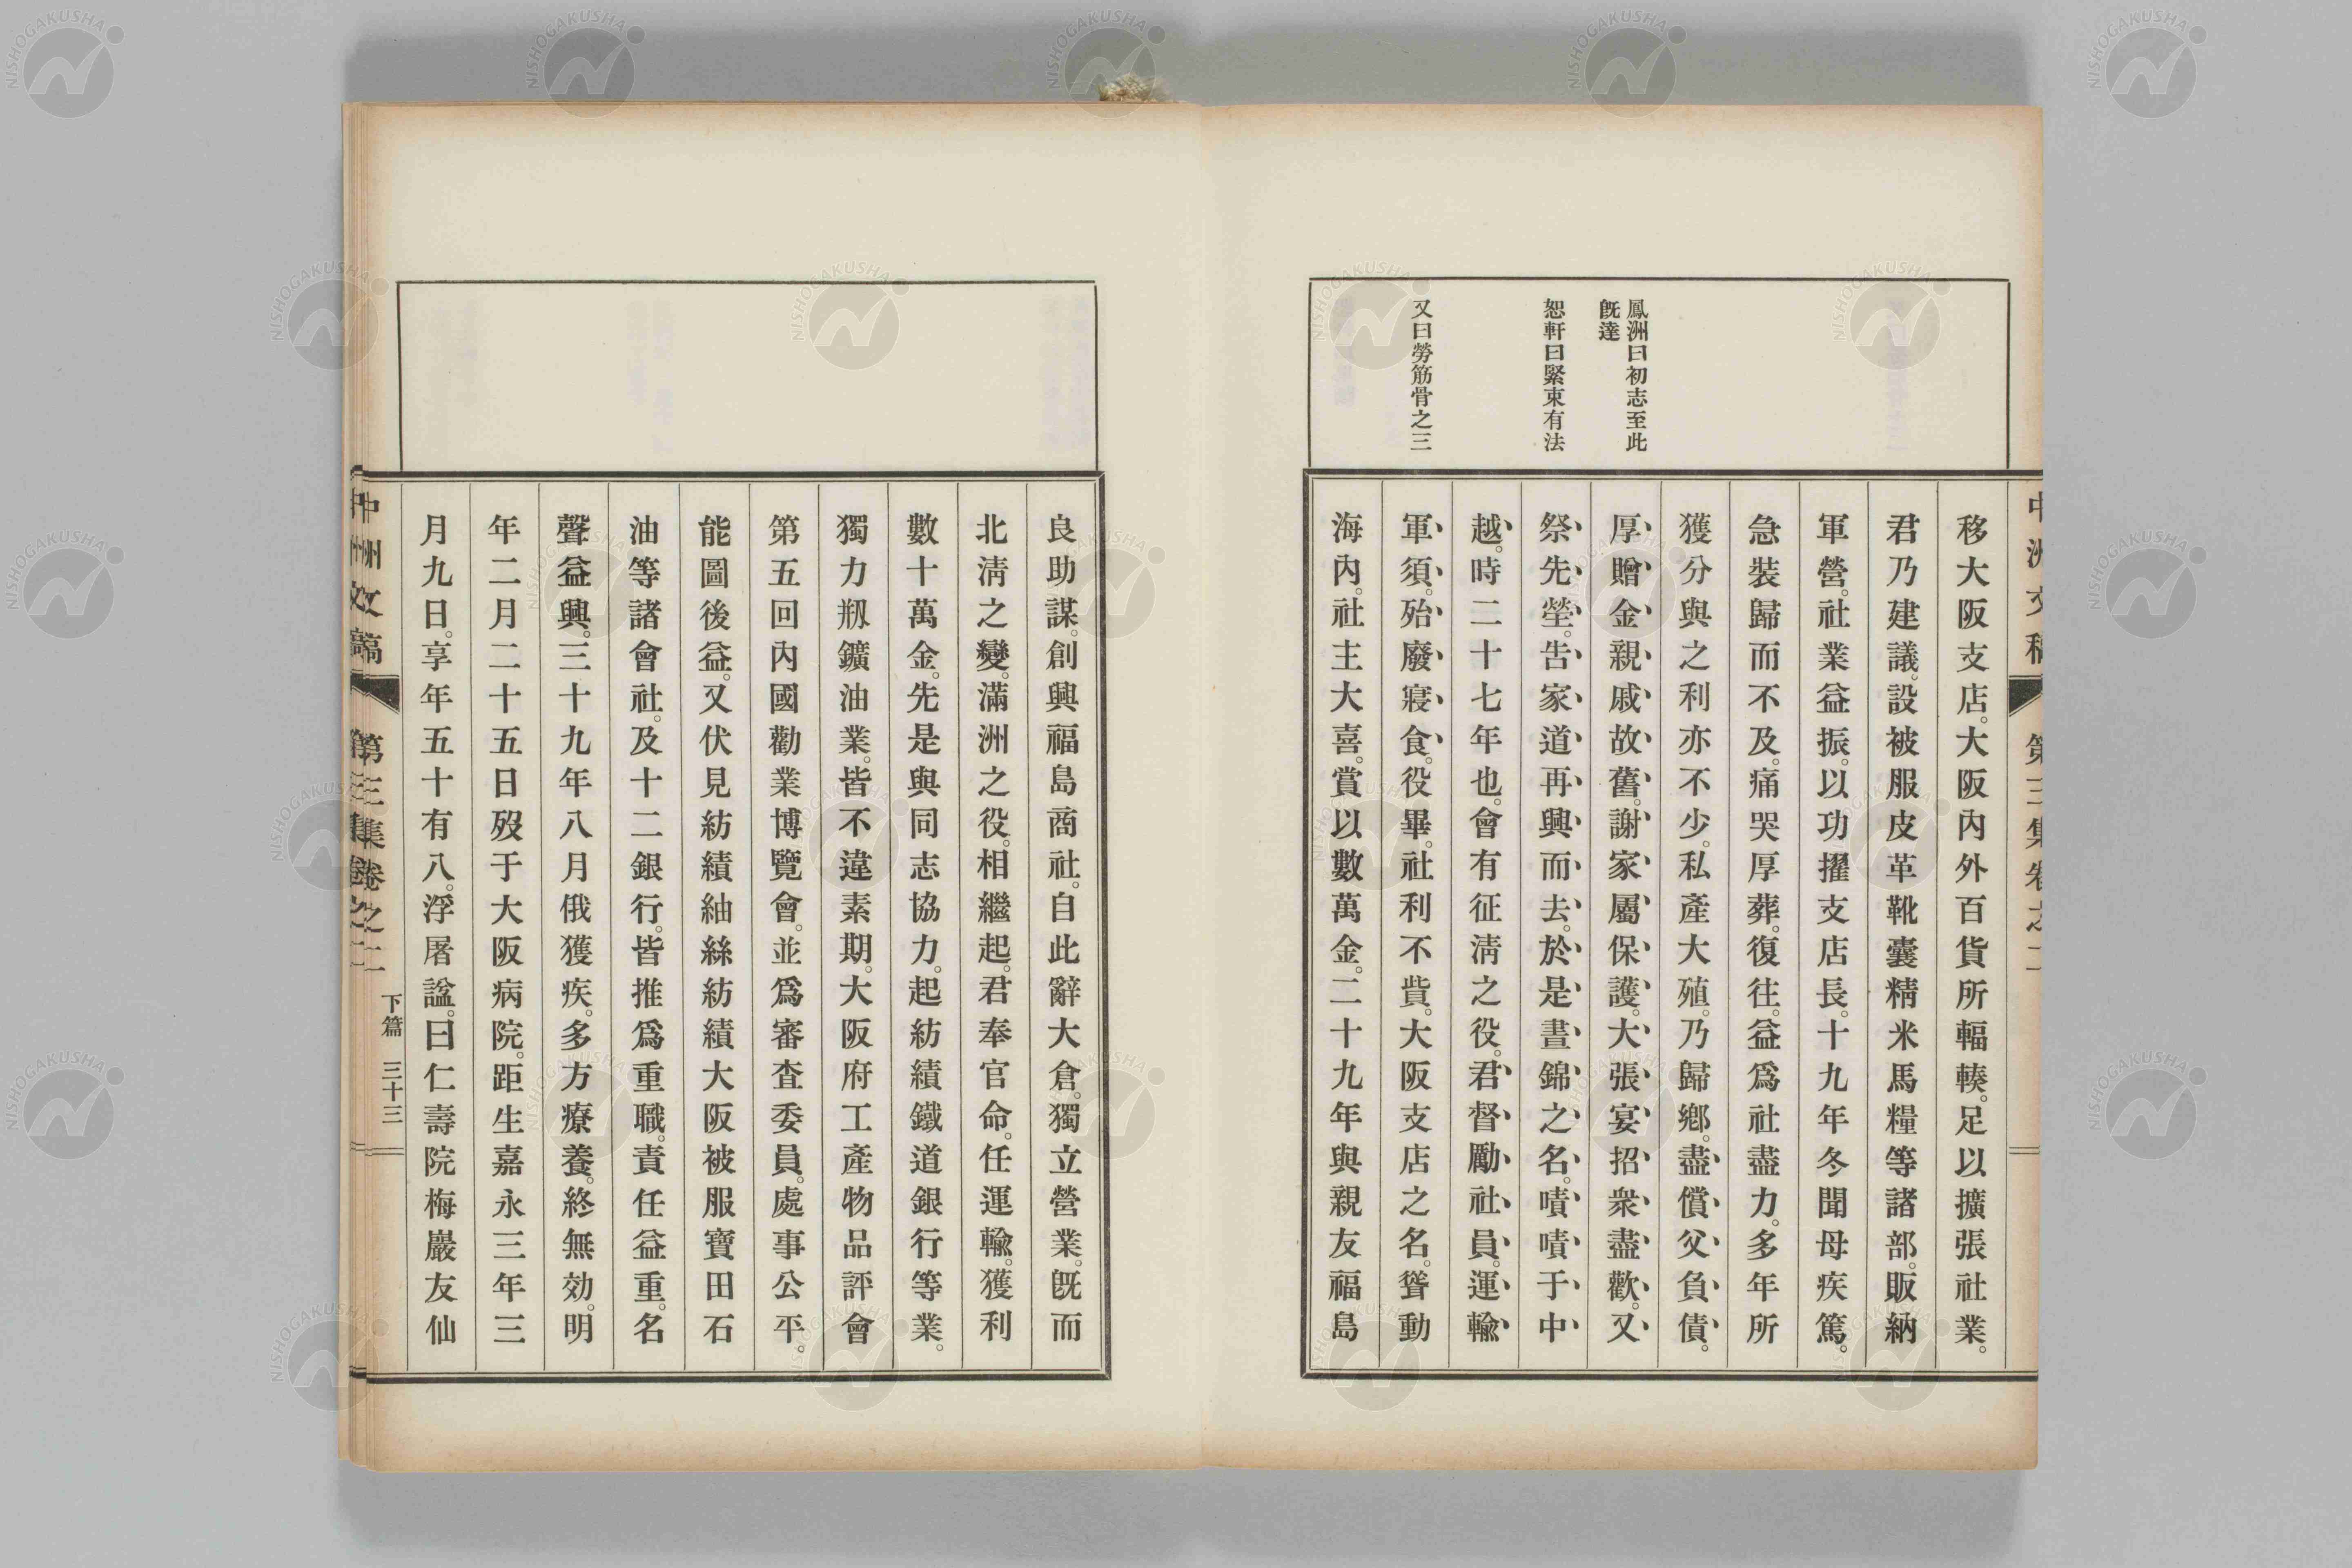 中洲文稿 第三集卷之二
鳳洲曰初志至此
既達
恕軒曰緊束有法
又曰勞筋骨之三
移大阪支店。大阪內外百貨所輻輳。足以擴張社業。
君乃建議。設被服皮革靴囊精米馬糧等諸部。販納
軍營。社業益振。以功擢支店長。十九年冬聞母疾篤。
急裝歸而不及。痛哭厚葬。復往。益爲社盡力。多年所
獲分與之利亦不少。私產大殖。乃歸鄕。盡償父負債。
厚贈金親戚故舊。謝家屬保護。大張宴招衆盡歡。又
祭先塋。吿家道再興而去。於是晝錦之名。嘖嘖于中
越。時二十七年也。會有征淸之役。君督勵社員。運輸
軍須。殆廢寢食。役畢。社利不貲。大阪支店之名。聳動
海內。社主大喜。賞以數萬金。二十九年與親友福島
良助謀。創興福島商社。自此辭大倉。獨立營業。旣而
北淸之變。滿洲之役。相繼起。君奉官命。任運輸。獲利
數十萬金。先是與同志協力。起紡績鐵道銀行等業。
獨力剏鑛油業。皆不違素期。大阪府工產物品評會
第五回內國勸業博覽會。並爲審査委員。處事公平。
能圖後益。又伏見紡績紬絲紡績大阪被服寶田石
油等諸會社。及十二銀行。皆推爲重職。責任益重。名
聲益興。三十九年八月俄獲疾。多方療養。終無効。明
年二月二十五日歿于大阪病院。距生嘉永三年三
月九日。享年五十有八。浮屠諡。曰仁壽院梅巖友仙
中洲文稿 第三集卷之二 下篇 三十三
NISHOGAKUSHA